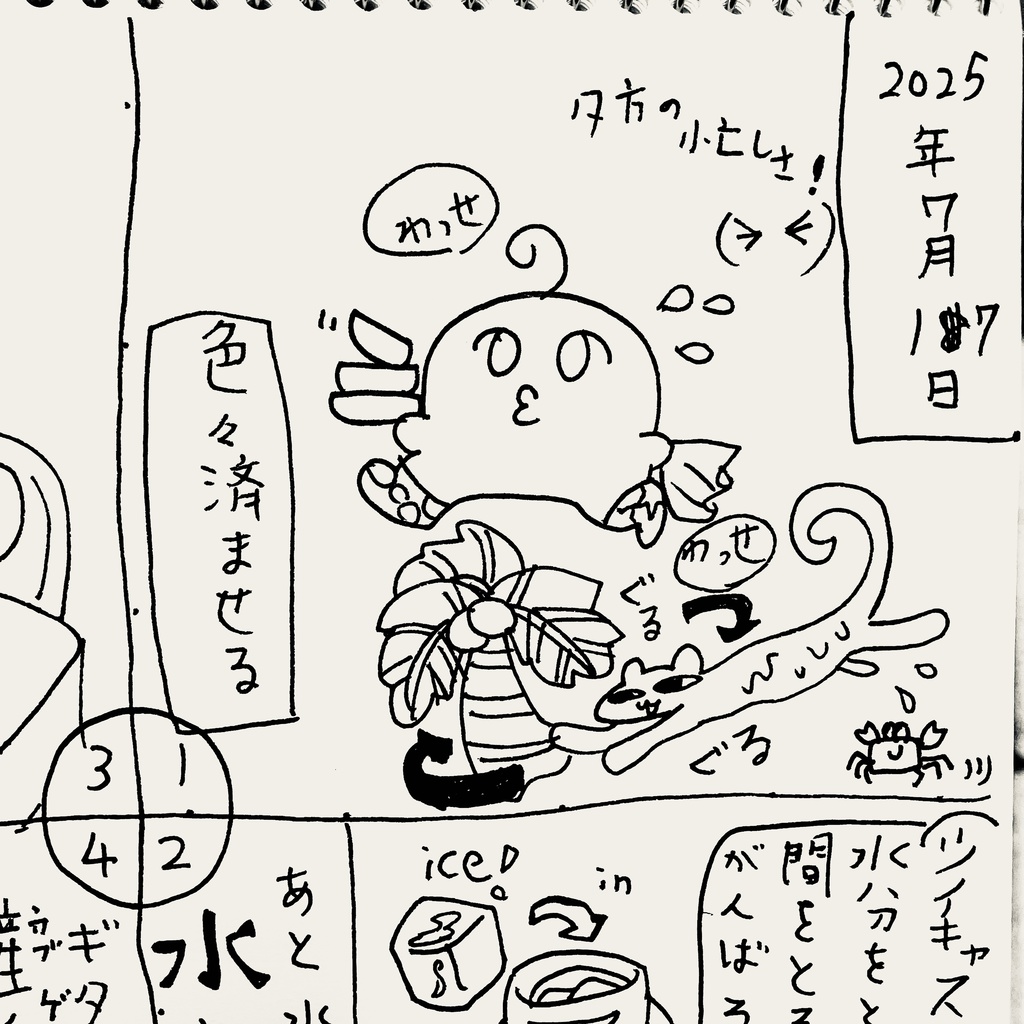 2025年7月17日
夕方の忙しさ!
(> <)
わっせ
色々済ませる
わっせ
ぐる
ぐる
3 1
4 2
ツイキャス
水分をと
間をとる
がんばろ
ice!
in
あと水
水
ギタ
ウブゲ